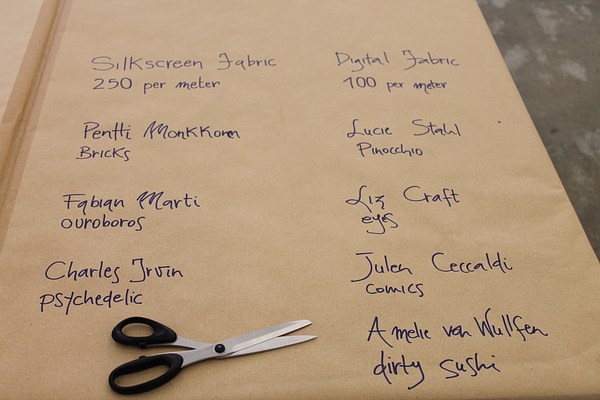 Silkscreen Fabric
250 per meter
Pentti Monkkonen
Bricks
Fabian Marti
ouroboros
Charles Irvin
psychedelic
Digital Fabric
100 per meter
Lucie Stahl
Pinocchio
Liz Craft
eyes
Julien Ceccaldi
comics
Amelie von Wulffen
dirty sushi